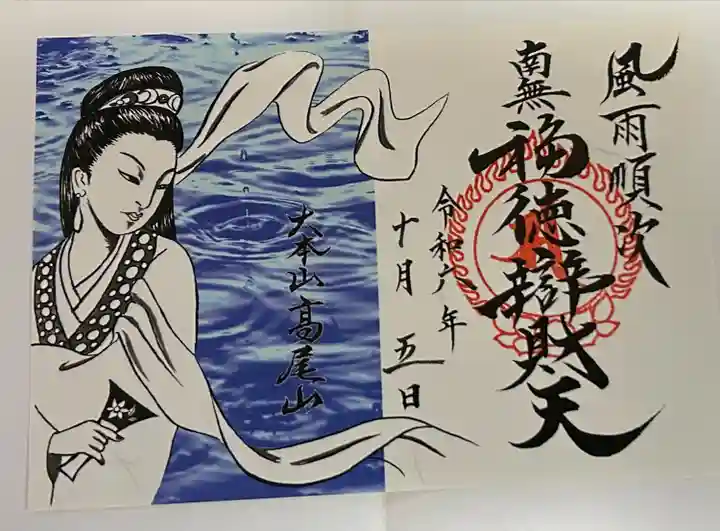 風雨順次
南無
福徳辯財天
令和六年
十月五日
大本山高尾山